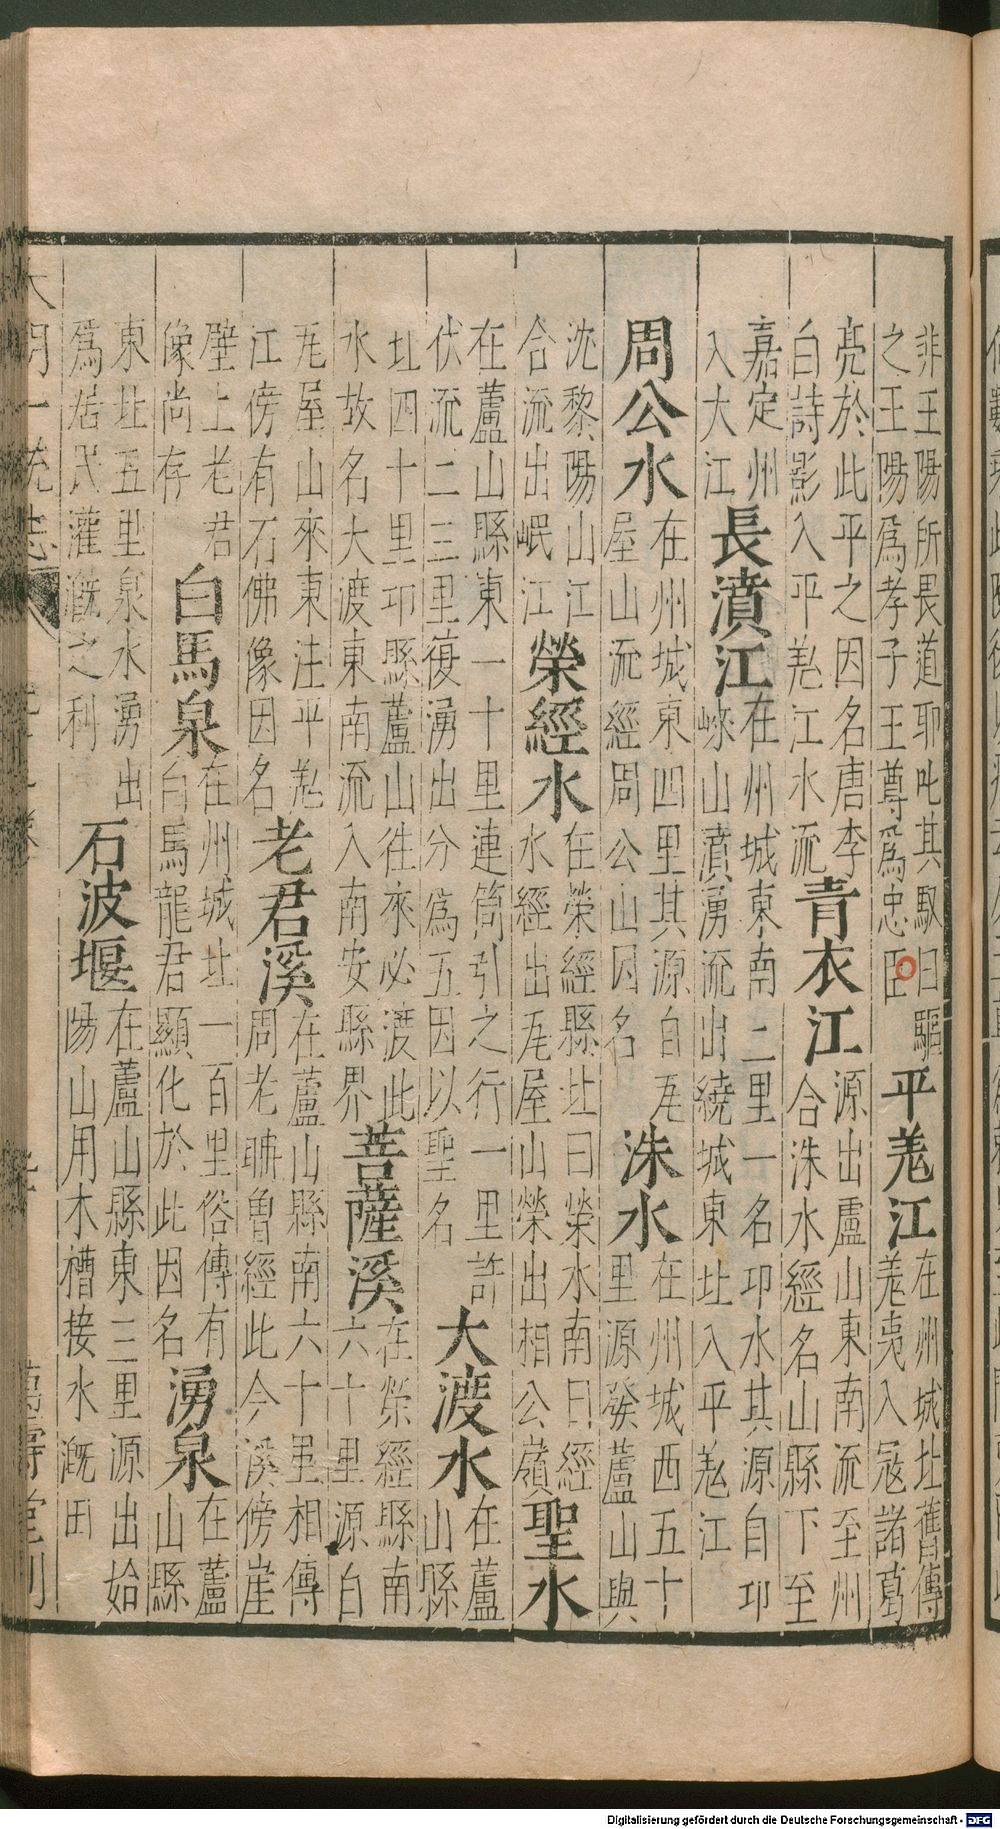 非王陽所畏道耶叱其馭曰驅
之王陽爲孝子王尊爲忠臣
平羌江
在州城北舊傳
羌夷入寇諸葛
亮於此平之因名唐李
白詩影入平羌江水流
青衣江
源出盧山東南流至州
合洙水經名山縣下至
嘉定州
入大江
長濆江
在州城東南二里一名邛水其源自邛
崍山濆湧流出繞城東北入平羌江
周公水
在州城東四里其源自瓦
屋山流經周公山因名
洙水
在州城西五十
里源發蘆山與
沈黎陽山江
合流出岷江
榮經水
在榮經縣北曰榮水南曰經
水經出瓦屋山榮出相公嶺
聖水
在蘆山縣東一十里連筒引之行一里許
伏流二三里復湧出分爲五因以聖名
大渡水
在蘆
山縣
北四十里邛縣蘆山往來必渡此
水故名大渡東南流入南安縣界
菩薩溪
在榮經縣南
六十里源自
瓦屋山來東注平羌
江傍有石佛像因名
老君溪
在蘆山縣南六十里相傳
周老聃魯經此今溪傍崖
壁上老君
像尚存
白馬泉
在州城北一百里俗傳有
白馬龍君顯化於此因名
湧泉
在蘆
山縣
東北五里泉水湧出
爲居民灌漑之利
石波堰
在蘆山縣東三里源出始
陽山用木槽接水漑田
大明一統志
萬壽堂刊
Digitalisierung gefördert durch die Deutsche Forschungsgemeinschaft - DFG